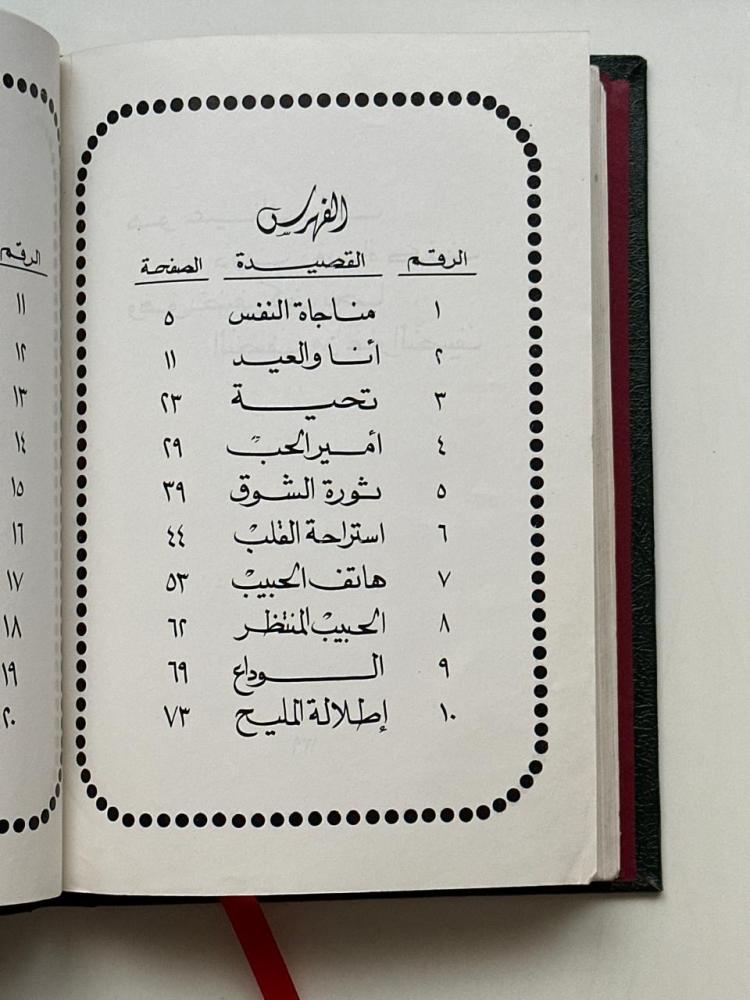 الفهرس
الرقم القصيدة الصفحة
١ مناجاة النفس ٥
٢ أنا والعيد ١١
٣ تحية ٢٣
٤ أمير الحب ٢٩
٥ ثورة الشوق ٣٩
٦ استراحة القلب ٤٤
٧ هاتف الحبيب ٥٣
٨ الحبيب المنتظر ٦٢
٩ الوداع ٦٩
١٠ إطلالة المليح ٧٣
الرقم
١١
١٢
١٣
١٤
١٥
١٦
١٧
١٨
١٩
٢٠